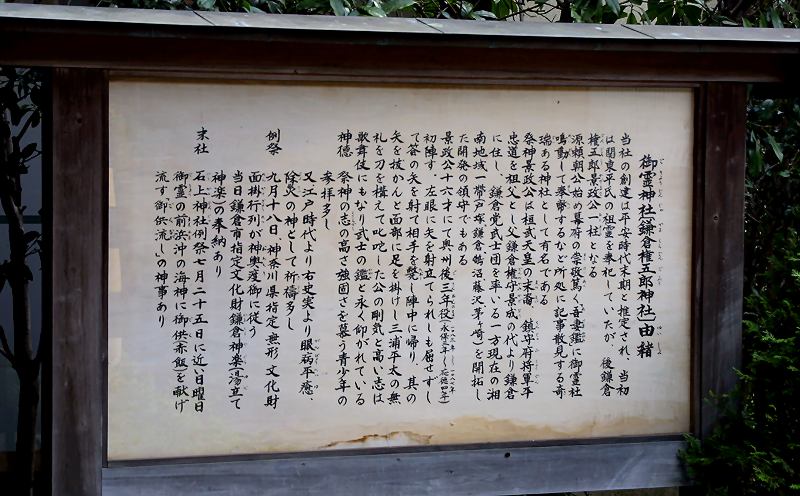 御霊神社(鎌倉権五郎神社)由緒
当社の創建は平安時代末期と推定され、当初
は関東平氏の祖霊を奉祀していたが、後鎌倉
権五郎景政公一柱となる
源頼朝公始め幕府の崇敬篤く、吾妻鑑に御霊社
鳴動して奉幣するなど所処に記事散見する奇
瑞ある神社として有名である
祭神景政公は桓武天皇の末裔、鎮守府将軍平
忠道を祖父とし父鎌倉権守景成の代より鎌倉
に住し、鎌倉党武士団を率いる一方現在の湘
南地域一帯戸塚鎌倉鵠沼藤沢茅ヶ崎)を開拓し
た開発の領守でもある
景政公十六才にて奥州後三年役
初陣す、左眼に矢を射立てられしも屈せずし
て答の矢を射て相手を斃し陣中に帰り、其の
矢を抜かんと面部に足を掛けし三浦平太の無
礼を刀を構えて叱咤した公の剛気と高い志は
歌舞伎にもなり武士の鑑と永く仰がれている
神徳 祭神の志の高さ強固さを慕う青少年の
参拝多し
又江戸時代より右史実より眼病平癒、
除災の神として祈禱多し
例祭 九月十八日、神奈川県指定無形文化財
面掛行列が神輿渡御に従う
当日鎌倉市指定文化財鎌倉神楽(湯立て
神楽)の奉納あり
末社 石上神社例祭七月二十五日に近い日曜日
御霊の前浜沖の海神に御供赤飯を献げ
流す「御供流し」の神事あり